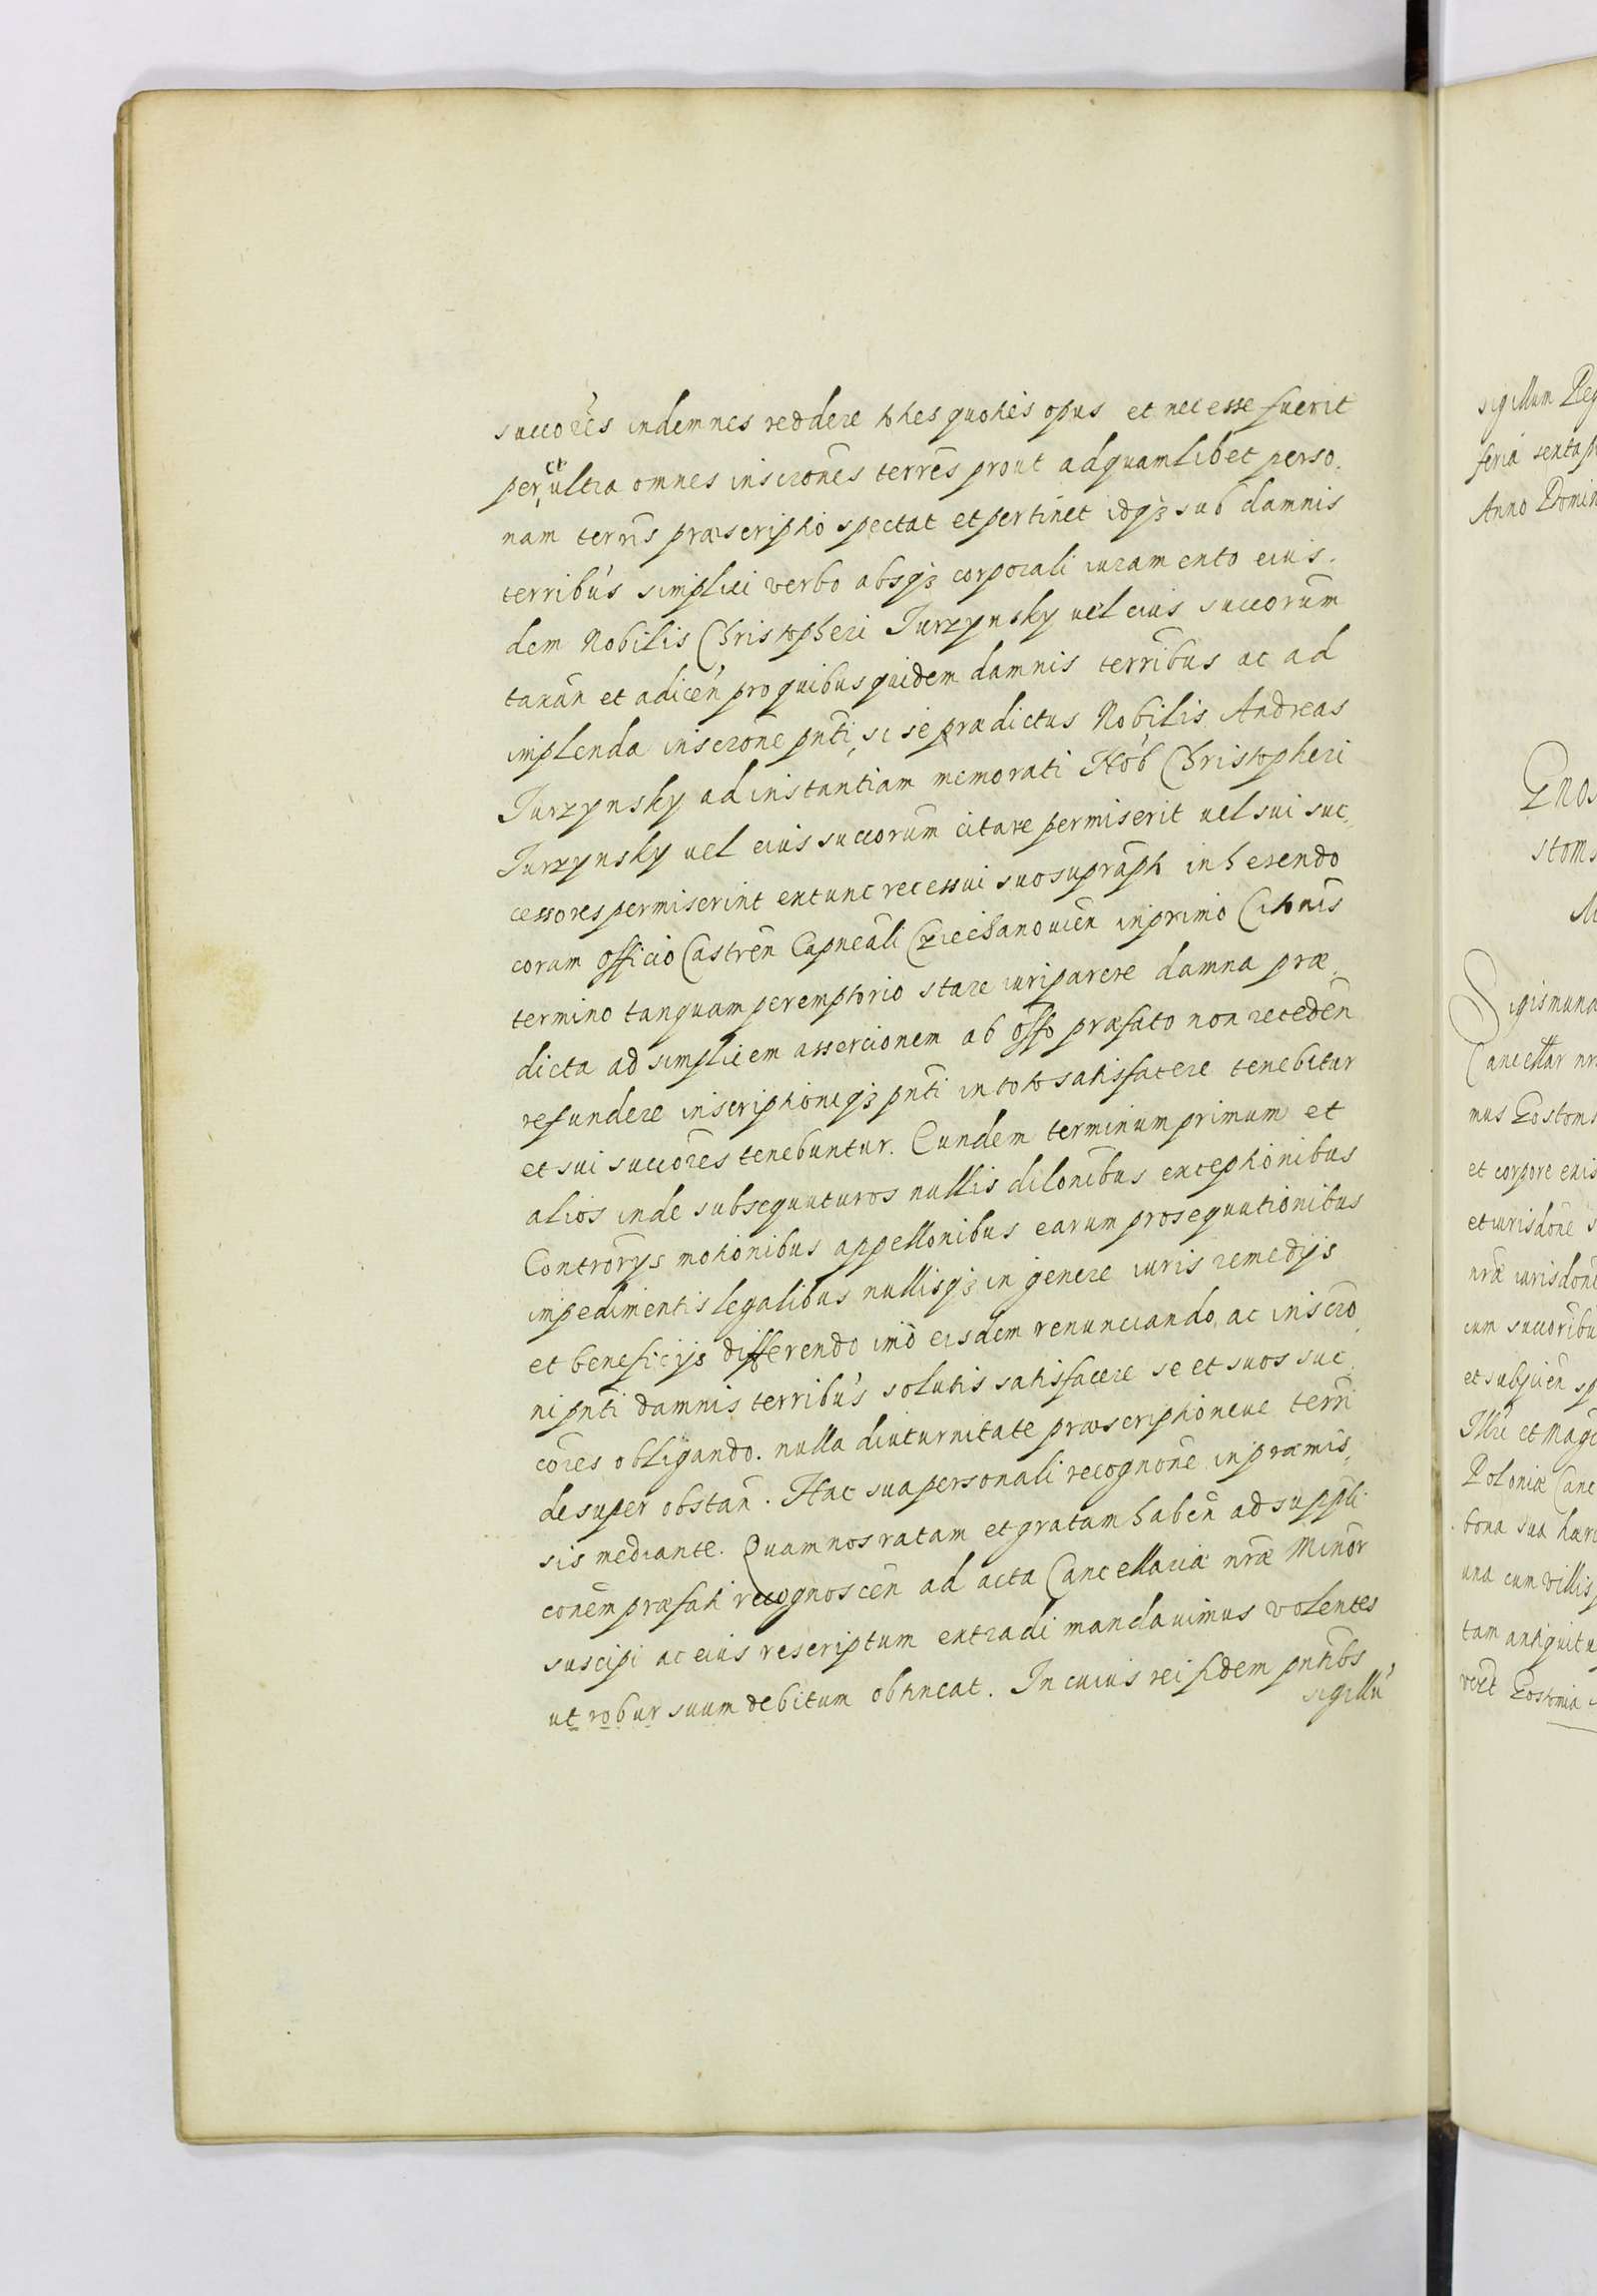 succores indemnes reddere tties quoties opus et necesse fuerit
per et ultra omnes inscrones terres prout ad quamlibet perso,
nam terris præscriptio spectat et pertinet idqз sub damnis
terribus simplici verbo absqз corporali iuramento eius.
dem Nobilis Christopheri Jurzynsky vel eius succorum
taxan et adicen pro quibus quidem damnis terribus ac ad
implenda inscrone pnti, si se prædictus Nobilis Andreas
Jurzynsky ad instantiam memorati Nob Christopheri
Jurzynsky vel eius succorum citare permiserit vel sui suc,
cessores permiserint extunc recessui suo supraph inherendo
coram officio Castren Capneali Cziechanovien in primo Citonis
termino tanquam peremptorio stare iuri parere damna præ,
dicta ad simplicem assercionem ab offo præfato non receden
refundere inscriptioniqз pnti in toto satisfacere tenebitur
et sui succores tenebuntur. Eundem terminum primum et
alios inde subsequuturos nullis dilonibus exceptionibus
Controrys motionibus appellonibus earum prosequutionibus
impedimentis legalibus nullisqз in genere iuris remedijs
et beneficijs differendo imo eisdem renunciando, ac inscro,
ni pnti damnis terribus solutis satisfacere se et suos suc,
cores obligando. nulla diuturnitate præscriptioneve terri
desuper obstan. Hac sua personali recognone in præmis,
sis mediante. Quam nos ratam et gratam haben ad suppli
conem præfati recognoscen ad acta Cancellariæ nræ Minor
suscipi ac eius rescriptum extradi mandavimus volentes
ut robur suum debitum obtineat. In cuius rei fidem pntibs
sigillu
sigillum Reg
feria sexta p
Anno Domin
Sigismund
Cancellar nr
mus Gostoms
et corpore exis
et iurisdone s
nræ iurisdoni
cum succoribu
et subjicen sp
Illri et Magc
Poloniæ Canc
bona sua hær
una cum villis
tam antiquitu
vert Gostomia